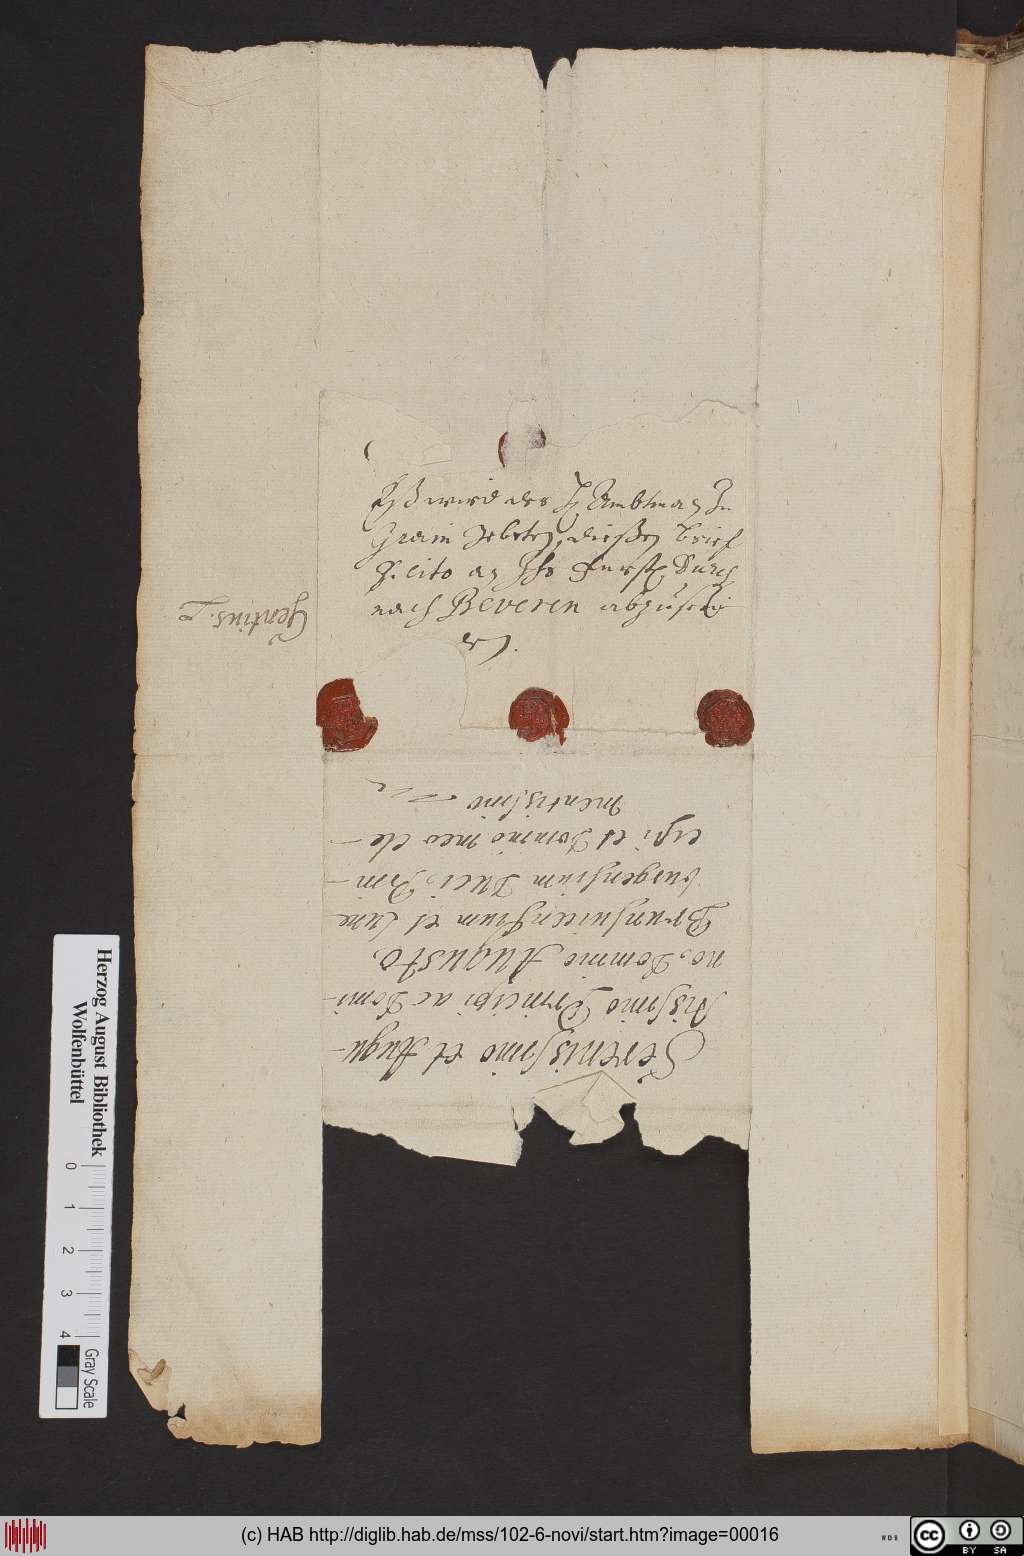 Eß wird der H Ambtman Zu
Grein gebeten, diesen brieff
cito an Ihr Furstl. Durch
nach Beveren abzuschi
den.
Gentius.
Serenissimo et Augu-
stissimo Principi ac Domi-
no, Domino Augusto,
Brunsuicensium et Lune
burgensium Duci, Prin-
cipi et Domino meo cle-
mentissimo
Herzog August Bibliothek
Wolfenbüttel
0 1 2 3 4
Gray Scale
(c) HAB http://diglib.hab.de/mss/102-6-novi/start.htm?image=00016
WDB
cc BY SA